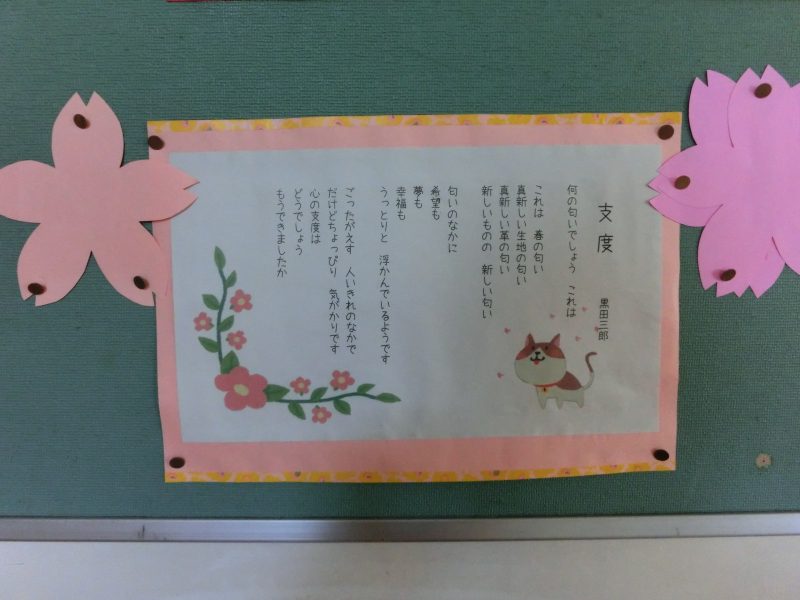 支度
黒田三郎
何の匂いでしょう　これは
これは　春の匂い
真新しい生地の匂い
真新しい革の匂い
新しいものの　新しい匂い
匂いのなかに
希望も
夢も
幸福も
うっとりと　浮かんでいるようです
ごったがえす　人いきれのなかで
だけどちょっぴり　気がかりです
心の支度は
どうでしょう
もうできましたか